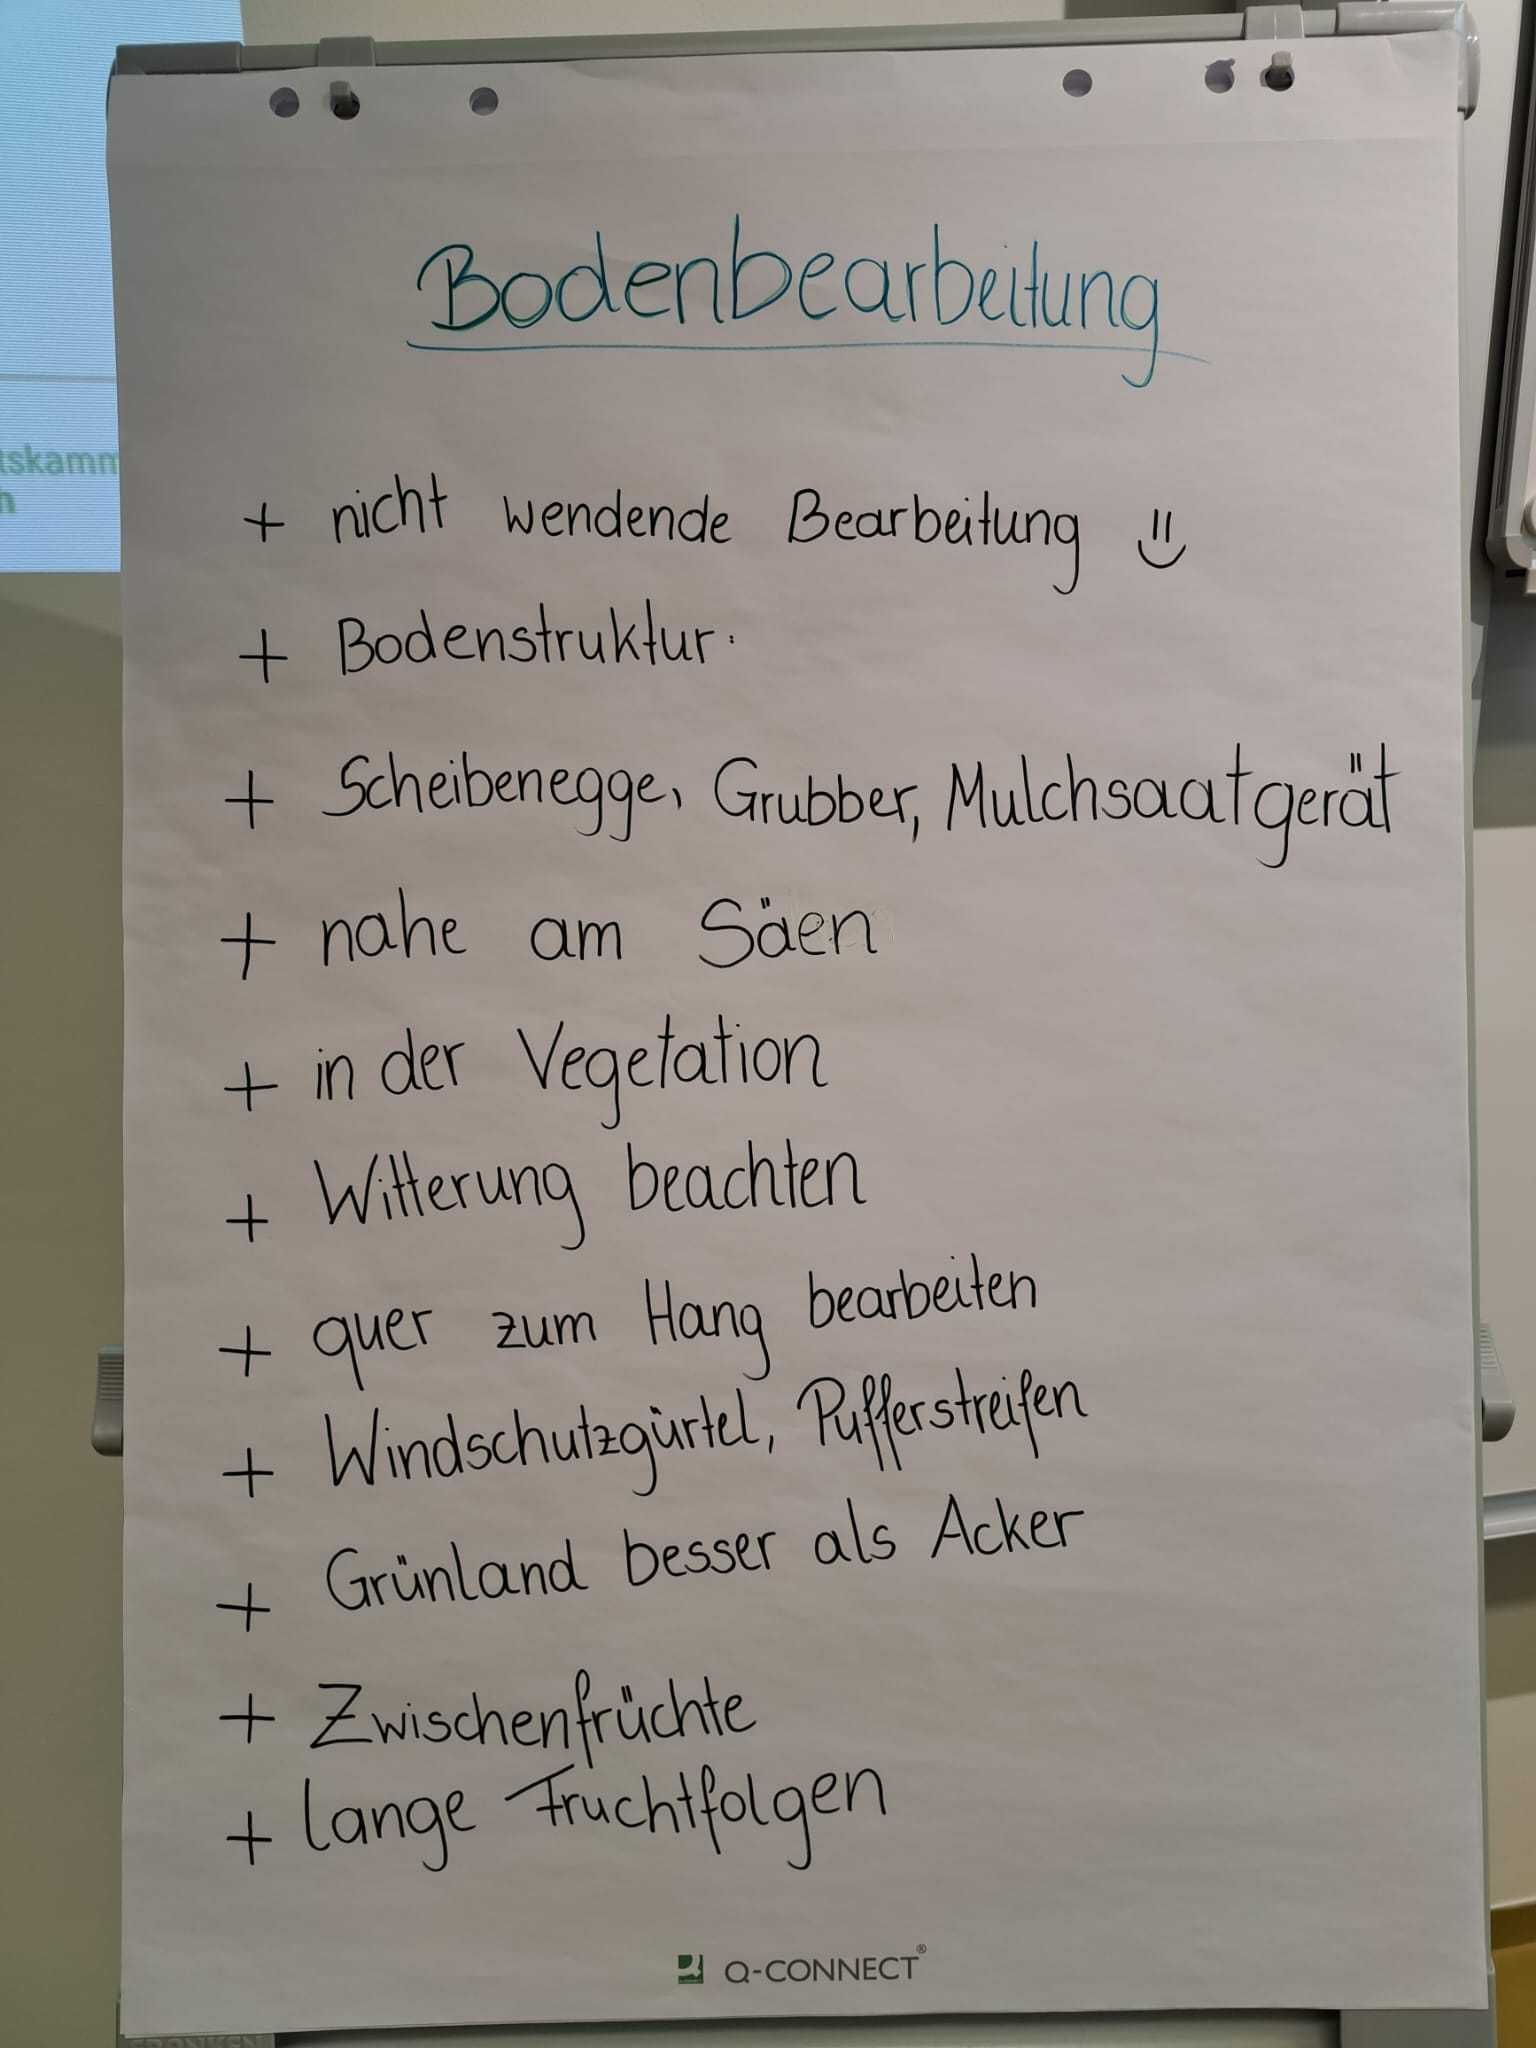 tskamm
h
Bodenbearbeitung
+ nicht wendende Bearbeitung
+ Bodenstruktur.
+ Scheibenegge, Grubber, Mulchsaatgerät
+ nahe am Säen
+ in der Vegetation
+ Witterung beachten
+ quer zum Hang bearbeiten
+ Windschutzgürtel, Pufferstreifen
+ Grünland besser als Acker
+ Zwischenfrüchte
+ lange Fruchtfolgen
Q-CONNECT®